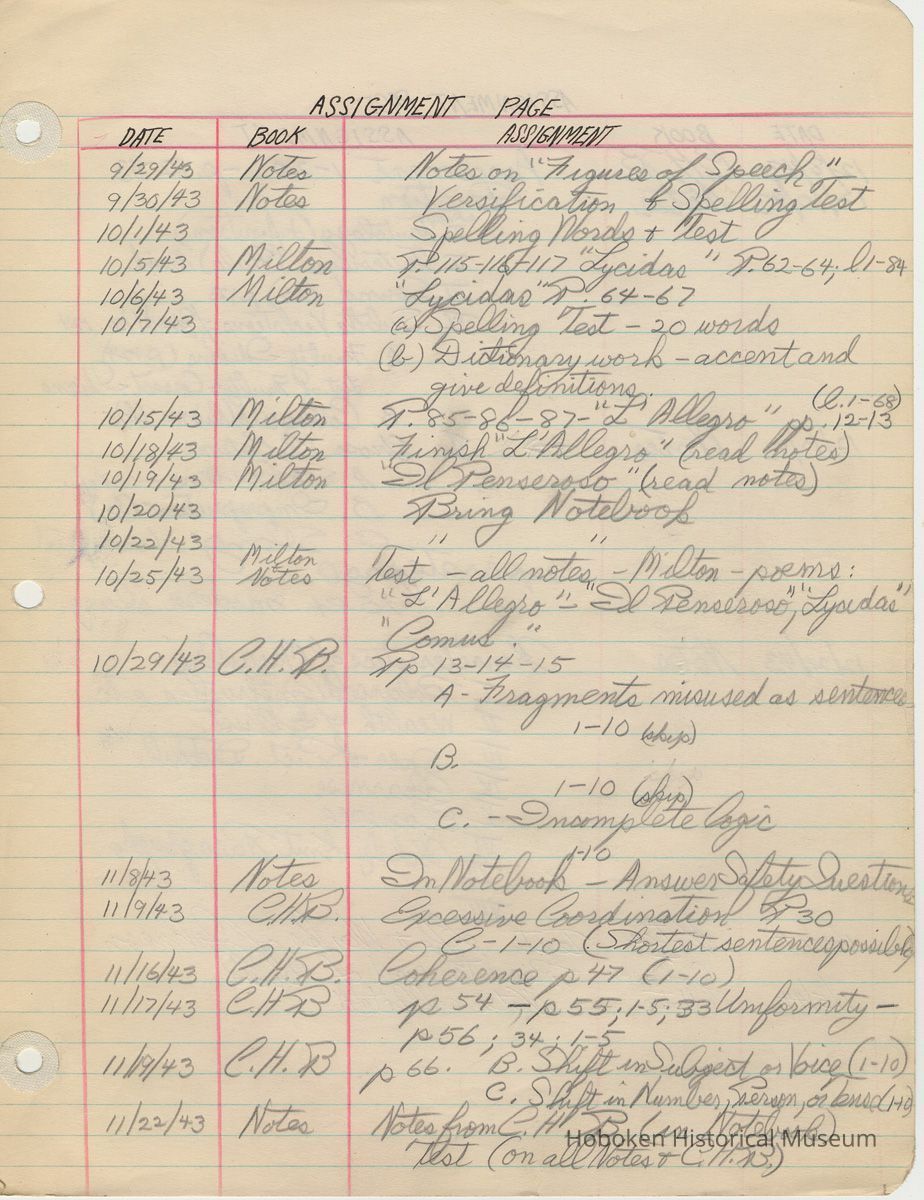 ASSIGNMENT PAGE
DATE BOOK ASSIGNMENT
9/29/43 Notes Notes on "Figures of Speech"
9/30/43 Notes Versification & Spelling Test
10/1/43 Spelling Words + Test
10/5/43 Milton P. 115-116-117 "Lycidas" P. 62-64; l 1-84
10/6/43 Milton "Lycidas" P. 64-67
10/7/43 (a) Spelling Test - 20 words
(b) Dictionary work - accent and
give definitions.
(l. 1-68)
10/15/43 Milton P. 85-86-87- "L'Allegro" pp. 12-13
10/18/43 Milton Finish "L'Allegro" (read notes)
10/19/43 Milton "Il Penseroso" (read notes)
10/20/43 Bring Notebook
10/22/43 " "
Milton
10/25/43 Notes Test - all notes - Milton - poems:
"L'Allegro" - "Il Penseroso", "Lycidas"
"Comus."
10/29/43 C.H.B. Pp 13-14-15
A - Fragments misused as sentences
1-10 (skip)
B.
1-10 (skip)
C. - Incomplete logic
1-10
11/8/43 Notes In Notebook - Answer Safety Questions
11/9/43 C.H.B. Excessive Coordination P 30
C-1-10 (Shortest sentences possible)
11/16/43 C.H.B. Coherence p 47 (1-10)
11/17/43 C.H.B p 54 - p 55; 1-5; 33 Uniformity -
p 56; 34; 1-5
11/19/43 C.H.B p 66. B. Shift in Subject or Voice (1-10)
C. Shift in Number, Person, or Tense (1-10)
11/22/43 Notes Notes from C.H.B. (in Notebook)
Test (on all Notes & C.H.B.)
Hoboken Historical Museum